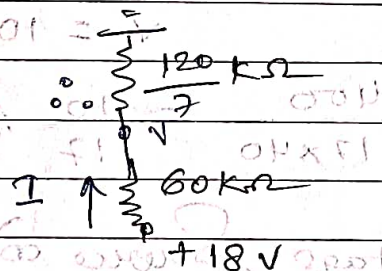 120/7 KΩ
∴ V
I ↑ 60KΩ
+ 18 V